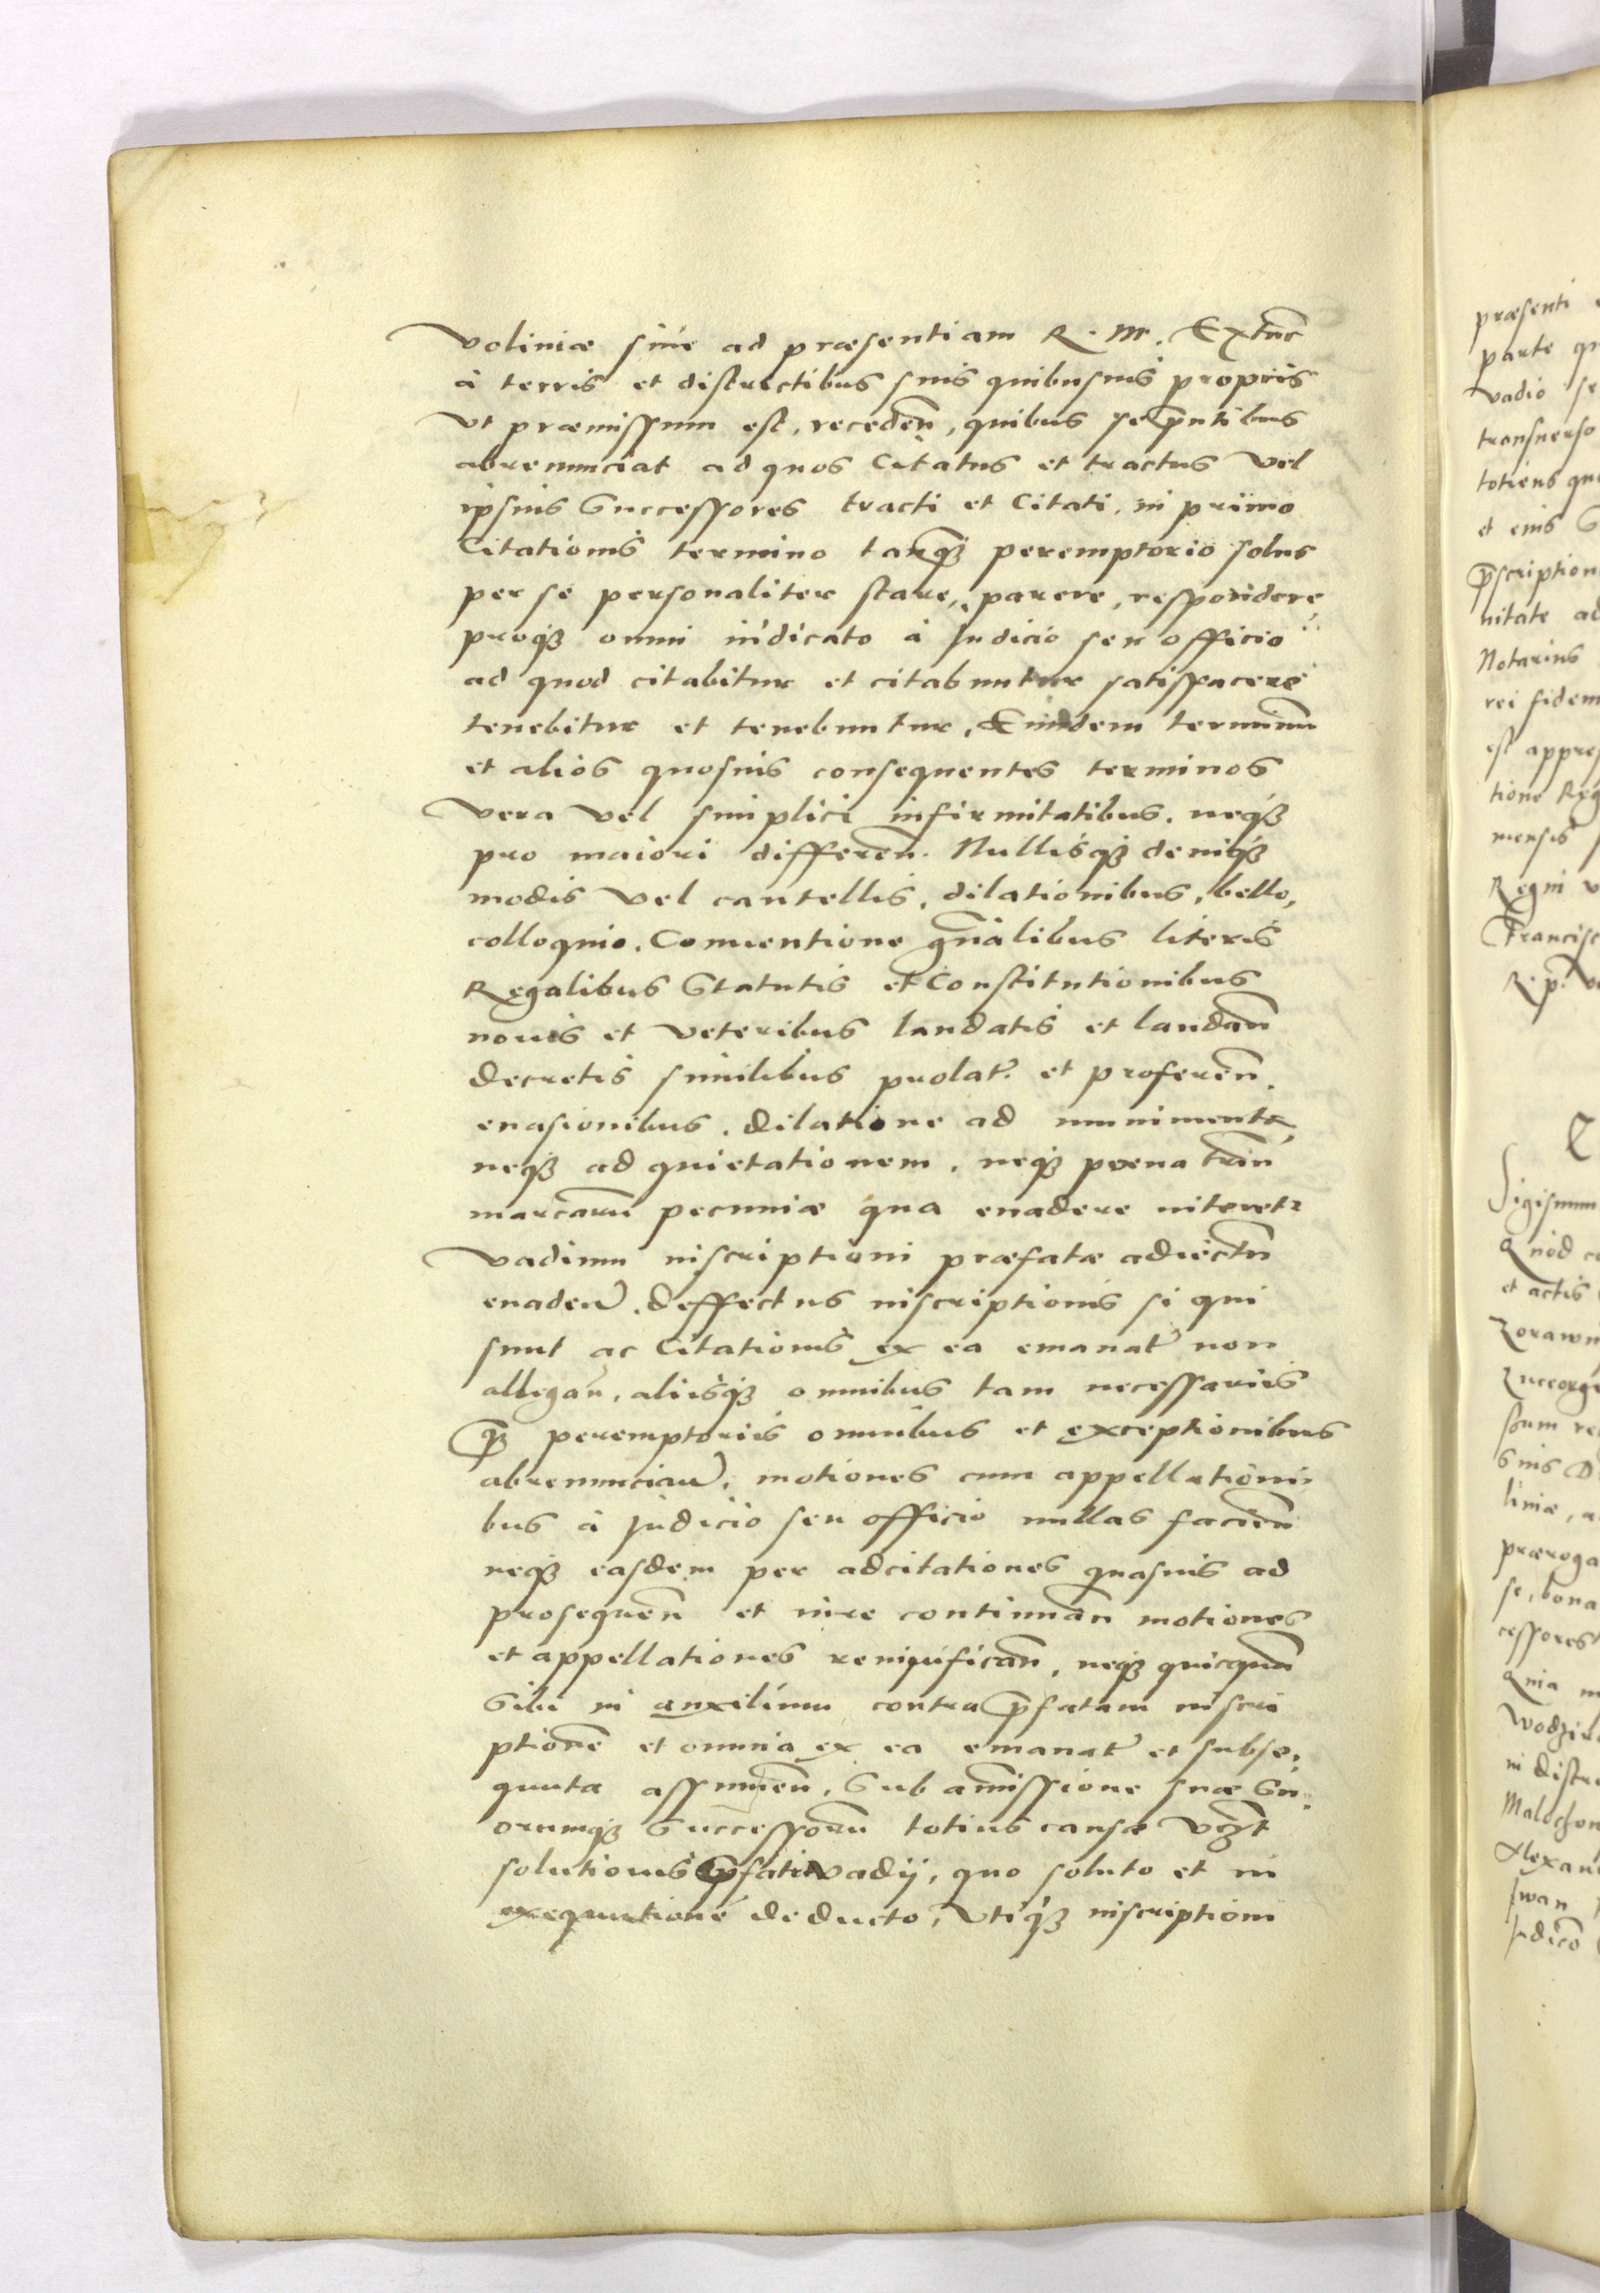 Voliniæ siue ad præsentiam R. M. Extūc
à terris et districtibus suis quibusuis proprijs
vt præmissum est, recedeñ, quibus se p̄ntibus
abrenunciat ad quos Citatus et tractus vel
ipsius Successores tracti et Citati, in primo
Citationis termino tanq̃ peremptorio solus
per se personaliter stare, parere, respondere,
proq̃ omni iudicato à Judicio seu officio
ad quod citabitur et citabuntur satisfacere
tenebitur et tenebuntur, Eundem terminū
et alios quosuis consequentes terminos
vera vel simplici infirmitatibus, neq̃
pro maiori differeñ. Nullisq̃ deniq̃
modis vel cautellis, dilationibus, bello,
colloquio, Conuentione gñalibus literis
Regalibus Statutis et Constitutionibus
nouis et veteribus laudatis et laudañ
decretis similibus prolat. et profereñ.
euasionibus, dilatione ad munimenta,
neq̃ ad quietationem, neq̃ poena triũ
marcarũ pecuniæ qua euadere niteret
vadium inscriptioni præfatæ adiectũ
euadeñ, deffectus inscriptionis si qui
sunt ac Citationis ex ea emanat non
allegañ, alijsq̃ omnibus tam necessarijs
q̃ peremptorijs omnibus et exceptionibus
abrenunciañ, motiones cum appellationi
bus à Judicio seu officio nullas facieñ
neq̃ easdem per adcitationes quasuis ad
prosequeñ et iure continuañ motiones
et appellationes renignificañ, neq̃ quicquã
Sibi in auxilium contra p̄fatam inscri
ptionē et omnia ex ea emanat et subse,
quuta assumeñ, Sub amissione suæ Su,
orumq̃ Successorũ totius causæ
solutionis p̄fati vadij, quo soluto et in
exequutionē deducto, vtiq̃ inscriptioni
præsenti
parte
vadio se
transuerso
totiens
et eius
p̄scription
nitate ad
Notarius
rei fidem
est
tione Reg
mensis
Regni
Francisc
Sigismun
Quod
et actis
linæ, a
præroga
se, bona
cessores
Quia
in distr
Alexan
Iwan